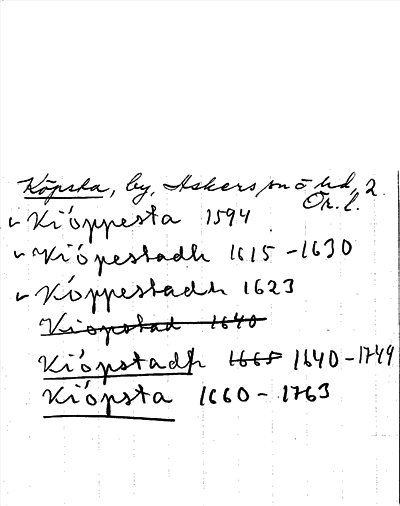 Köpsta, by, Askers sn ö hd, 2
Ör. l.
✓ Kiöppesta 1594
✓ Kiöpestadh 1615 - 1630
✓ Köppestadh 1623
Kiöpstad 1640
Kiöpstadh 1665 1640 - 1749
Kiöpsta 1660 - 1763